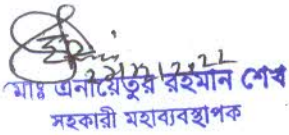 মোঃ এনায়েতুর রহমান শেখ
সহকারী মহাব্যবস্থাপক